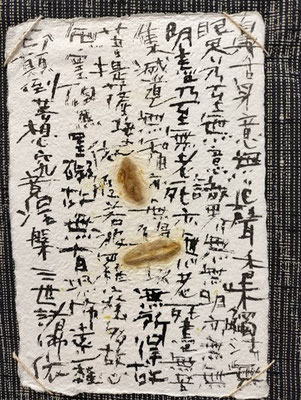 鼻舌身意無色聲香味觸法無
眼界乃至無意識界無無明亦無無
明盡乃至無老死亦無老死盡無苦
集滅道無智亦無得以無所得故
菩提薩埵依般若波羅蜜多故心
無罣礙無罣礙故無有恐怖遠離
顛倒夢想究竟涅槃三世諸佛依